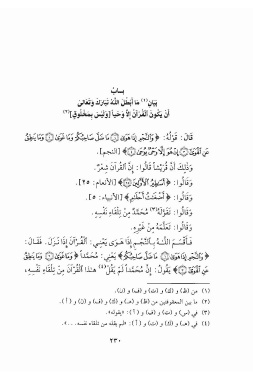 باب
بيان(١) ما أبطل الله تبارك وتعالى
أن يكون القرآن إلا وحياً [وليس بمخلوق](٢)
قال: قوله: ﴿وَالنَّجْمِ إِذَا هَوَىٰ ۝١ مَا ضَلَّ صَاحِبُكُمْ وَمَا غَوَىٰ ۝٢ وَمَا يَنطِقُ
عَنِ الْهَوَىٰ ۝٣ إِنْ هُوَ إِلَّا وَحْيٌ يُوحَىٰ ۝٤﴾ [النجم].
وذلك أن قريشاً قالوا: إن القرآن شعر.
وقالوا: ﴿أَسَاطِيرُ الْأَوَّلِينَ﴾ [الأنعام: ٢٥].
وقالوا: ﴿أَضْغَاثُ أَحْلَامٍ﴾ [الأنبياء: ٥].
وقالوا: تقوله(٣) محمد من تلقاء نفسه.
وقالوا: تعلمه من غيره.
فأقسم الله بالنجم إذا هوى يعني: القرآن إذا نزل. فقال:
﴿وَالنَّجْمِ إِذَا هَوَىٰ ۝١ مَا ضَلَّ صَاحِبُكُمْ﴾ يعني: محمداً ﴿وَمَا غَوَىٰ ۝٢ وَمَا يَنطِقُ
عَنِ الْهَوَىٰ ۝٣﴾ يقول: إن محمداً لم يقل(٤) هذا القرآن من تلقاء نفسه،
(١) من (ظ) و(ك) و(ت) و(ف) و(ن).
(٢) ما بين المعقوفتين من (ظ) و(هـ) و(ك) و(ف) و(ن) و(أ).
(٣) في (س) و(ت) و(ف) و(أ): «يقوله».
(٤) في (هـ) و(ك) و(ت) و(أ): «لم يقله من تلقاء نفسه...».
٢٣٠